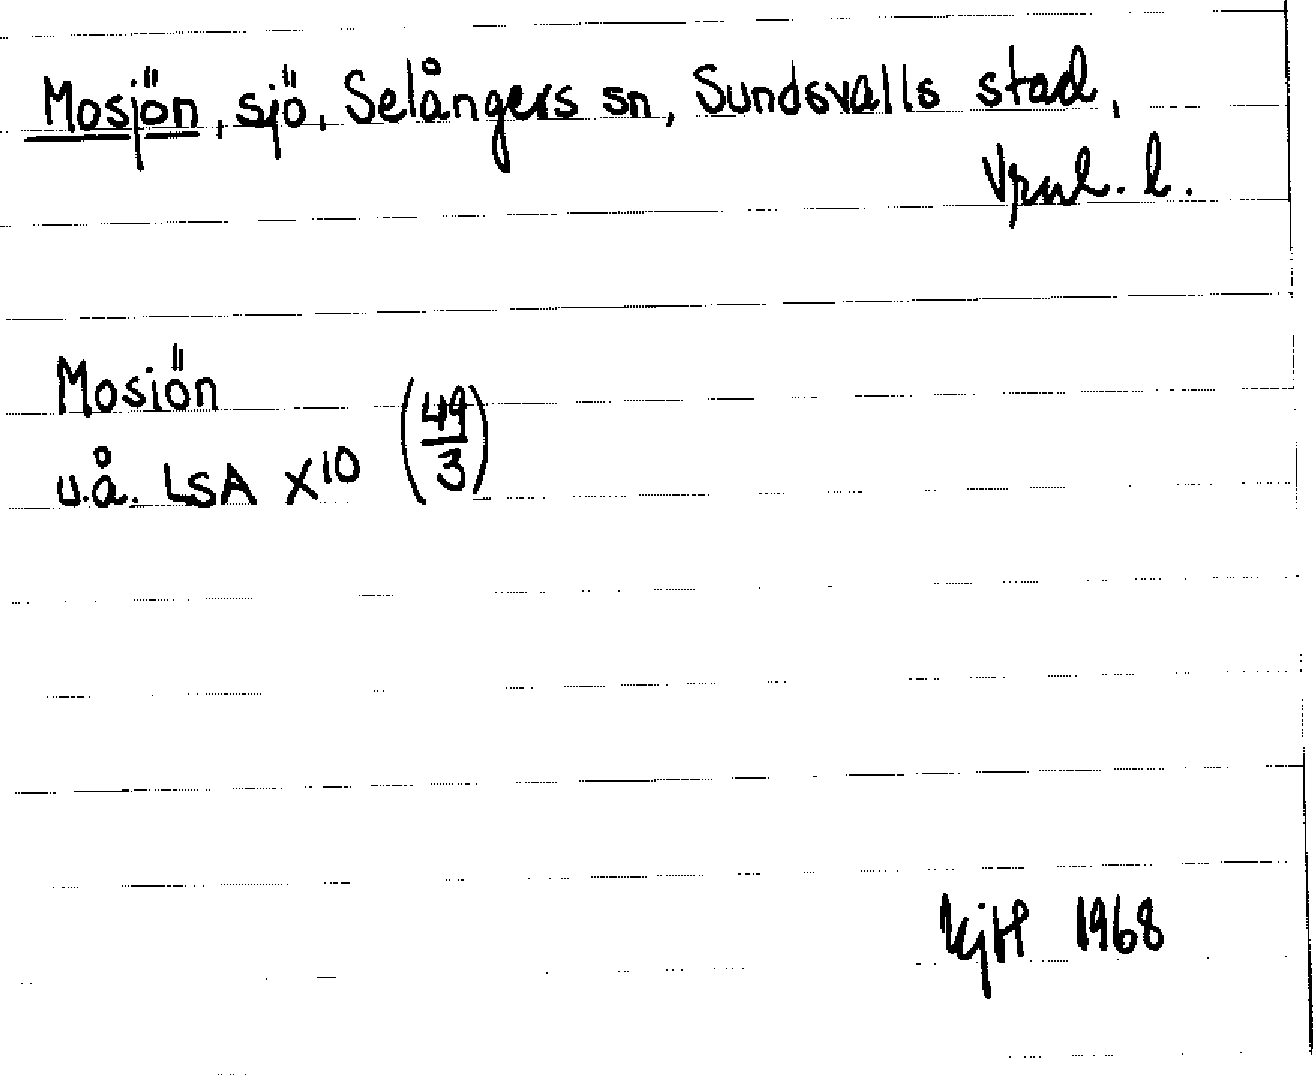 Mosjön, sjö, Selångers sn, Sundsvalls stad,
Vrnl. l.
Mosiön
u.å. LSA X10 (49/3)
KjH 1968